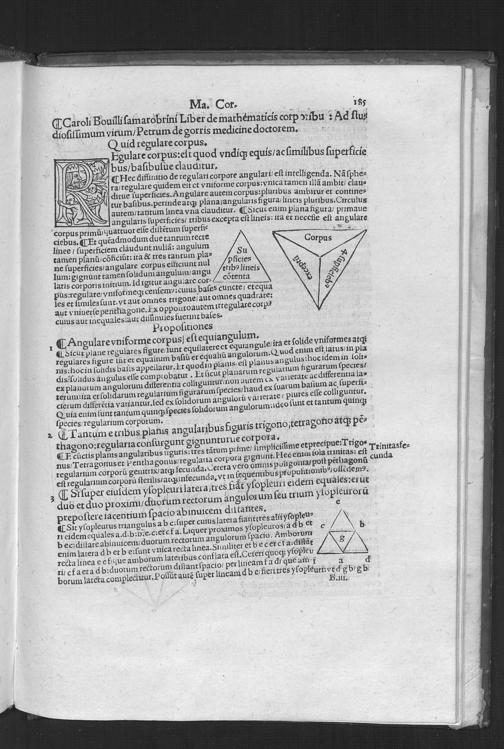 Ma. Cor. 185
¶Caroli Bouilli samarobrini Liber de mathematicis corporibus: Ad stu-
diosissimum virum/Petrum de gorris medicine doctorem.
Quid regulare corpus.
REgulare corpus: est quod vndiq; equis/ac similibus superficie
bus/basibusue clauditur.
¶Hec diffinitio de regulari corpore angulari: est intelligenda. Nā sphe-
ra/regulare quidem eit et vniforme corpus: vnica tamen illā ambit/clau-
ditue superficies. Angulare autem corpus: pluribus ambitur et contine-
tur basibus. perinde atq; plana/angularis figura/lineis pluribus. Circulus
autem/tantum linea vna clauditur. ¶Sicut enim plana figura/primaue
angularis superficies/tribus excepta est lineis: ita et necesse est angulare
corpus primū: quattuor esse disiētum superfi-
ciebus. ¶Et quēadmodum due tantum recte
linee/superficiem claudunt nullā: angulum
tamen planū cōficiūt: ita & tres tantum pla-
ne superficies/angulare corpus efficiunt nul
lum: gignunt tamen solidum angulum/angu
laris corporis initium. Id igitur angulare cor-
pus: regulare/vniforme q; censemus: cuius bases cuncte: et equa
les et similes sunt. vt aut omnes trigone: aut omnes quadrate:
aut vniuerse penthagone. Ex opposito autem irregulare corpus
cuius aut inequales: aut dissimiles fuerint bases.
Su
pficies
trib9 lineis
cōtenta
Corpus
exceptū
4 supficieb9
Propositiones
1 ¶Angulare vniforme corpus: est equiangulum.
¶Sicut plane regulares figure sunt equilatere et equiangule: ita et solide vniformes atq;
regulares figure sunt et equalium basiū et equaliū angulorum. Quod enim est latus: in pla
nis: hoc in solidis basis appellatur. Et quod in planis: est planus angulus: hoc idem in soli-
dis/solidus angulus esse comprobatur. Et sicut planarum regularium figurarum species/
ex planorum angulorum differentia colliguntur: non autem ex varietate ac differentia la-
terum: ita et solidarum regularium figurarum species/haud ex suarum basium ac superfi-
cierum differētia variantur. sed ex solidorum angulorū varietate/plures esse colliguntur.
Quia enim sunt tantum quinq; species solidorum angulorum: ideo sunt et tantum quinq;
species/regularium corporum.
2 ¶Tantum e tribus planis angularibus figuris trigono, tetragono atq; pē-
thagono: regularia consurgunt gignunturue corpora.
¶E cūctis planis angularibus figuris: tres tātum prime/simplicissime et precipue: Trigo-
nus/Tetragonus et Penthagonus/regularia corpora gignunt. Hec enim sola trinitas: est
regularium corporū genitrix: atq; fecunda. Cetera vero omnis poligonia post pēthagonū
est regularium corporū sterilis: atq; infecunda, vt in sequentibus propositionibus ostēdemus.
Trinitas fe-
cunda
3 ¶Si super eiusdem ysopleuri latera, tres fiāt ysopleuri eidem equales: erūt
duo et duo proximi/duorum rectorum angulorum seu trium ysopleurorū
prepostere iacentium spacio abinuicem distantes.
¶Sit ysopleurus triangulus a b c: super cuius latera fiant: tres alii ysopleu-
ri eidem equales a.d.b: b.e.c: et c f a. Liquet proximos ysopleuros: a d b et
b e c: distare abinuicem: duorum rectorum angulorum spacio. Amborum
enim latera d b et b e: sunt vnica recta linea. Similiter et b e c et c f a: distāt
recta linea e c f: que amborum lateribus conflata est. Ceteri quoq; ysopleu
ri: c f a et a d b: duorum rectorum distant spacio: per lineam f a d: que am
borum latera complectitur. Possūt autē super lineam d b e: fieri tres ysopleuri: vt d g b: g b
e
c b
g
f a d
B.iii.